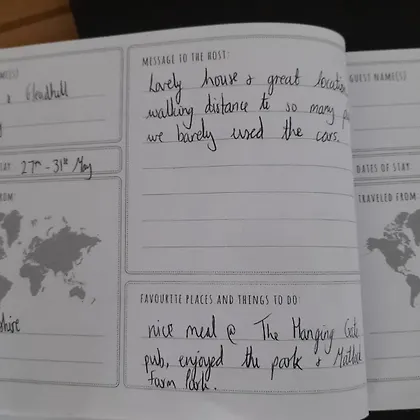 NAME(S)
& Gleadhill
STAY 27th - 31st May
FROM
shire
MESSAGE TO THE HOST:
Lovely house & great location
walking distance to so many
we barely used the cars.
FAVOURITE PLACES AND THINGS TO DO
nice meal @ The Hanging Gate
pub, enjoyed the park & Matlock
farm Park.
GUEST NAME(S)
DATES OF STAY
TRAVELED FROM